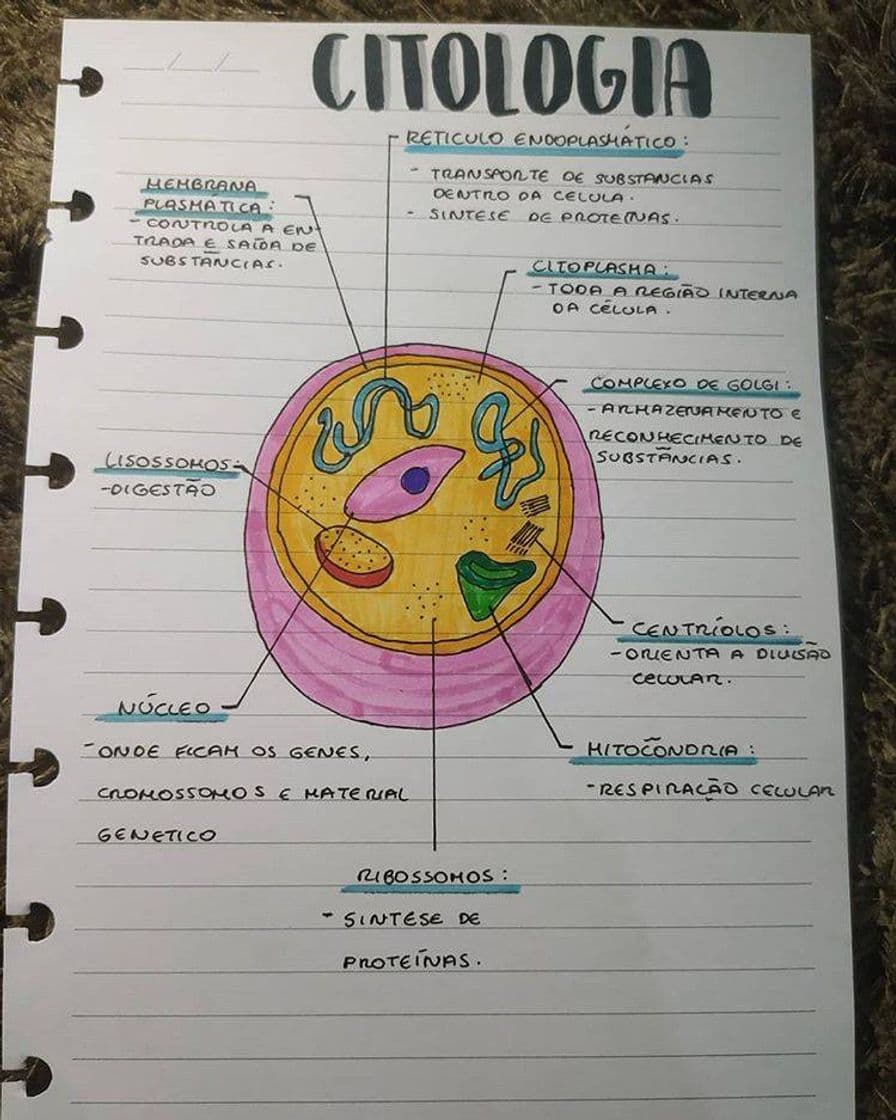 CITOLOGIA
/ /
RETICULO ENDOPLASMÁTICO:
- TRANSPORTE DE SUBSTANCIAS
DENTRO DA CELULA.
- SINTESE DE PROTEINAS.
MEMBRANA
PLASMATICA:
- CONTROLA A EN-
TRADA E SAÍDA DE
SUBSTÂNCIAS.
CITOPLASMA:
- TODA A REGIÃO INTERNA
DA CÉLULA.
COMPLEXO DE GOLGI:
- ARMAZENAMENTO E
RECONHECIMENTO DE
SUBSTÂNCIAS.
LISOSSOMOS:
- DIGESTÃO
CENTRÍOLOS:
- ORIENTA A DIVISÃO
CELULAR.
NÚCLEO
- ONDE FICAM OS GENES,
CROMOSSOMOS E MATERIAL
GENETICO
MITOCÔNDRIA:
- RESPIRAÇÃO CELULAR
RIBOSSOMOS:
- SINTESE DE
PROTEÍNAS.